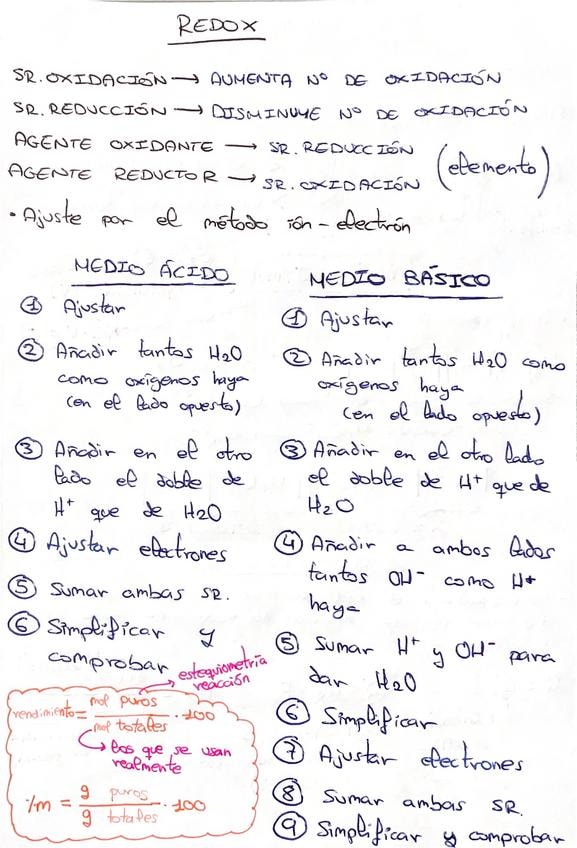 REDOX
SR. OXIDACIÓN → AUMENTA Nº DE OXIDACIÓN
SR. REDUCCIÓN → DISMINUYE Nº DE OXIDACIÓN
AGENTE OXIDANTE → SR. REDUCCIÓN
(elemento)
AGENTE REDUCTOR → SR. OXIDACIÓN
• Ajuste por el método ión-electrón
MEDIO ÁCIDO
① Ajustar
② Añadir tantos H2O
como oxígenos haya
(en el lado opuesto)
③ Añadir en el otro
lado el doble de
H+ que de H2O
④ Ajustar electrones
⑤ Sumar ambas SR.
⑥ Simplificar y
comprobar
MEDIO BÁSICO
① Ajustar
② Añadir tantos H2O como
oxígenos haya
(en el lado opuesto)
③ Añadir en el otro lado
el doble de H+ que de
H2O
④ Añadir a ambos lados
tantos OH- como H+
haya
⑤ Sumar H+ y OH- para
dar H2O
⑥ Simplificar
⑦ Ajustar electrones
⑧ Sumar ambas SR.
⑨ Simplificar y comprobar
→ estequiometría
reacción
rendimiento = mol puros / mol totales · 100
→ los que se usan
realmente
%m = g puros / g totales · 100